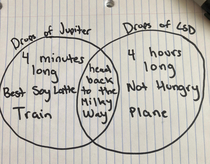 Drops of Jupiter
Drops of LSD
4 minutes
long
Best Soy Latte
Train
head
back
to the
Milky
Way
4 hours
long
Not Hungry
Plane